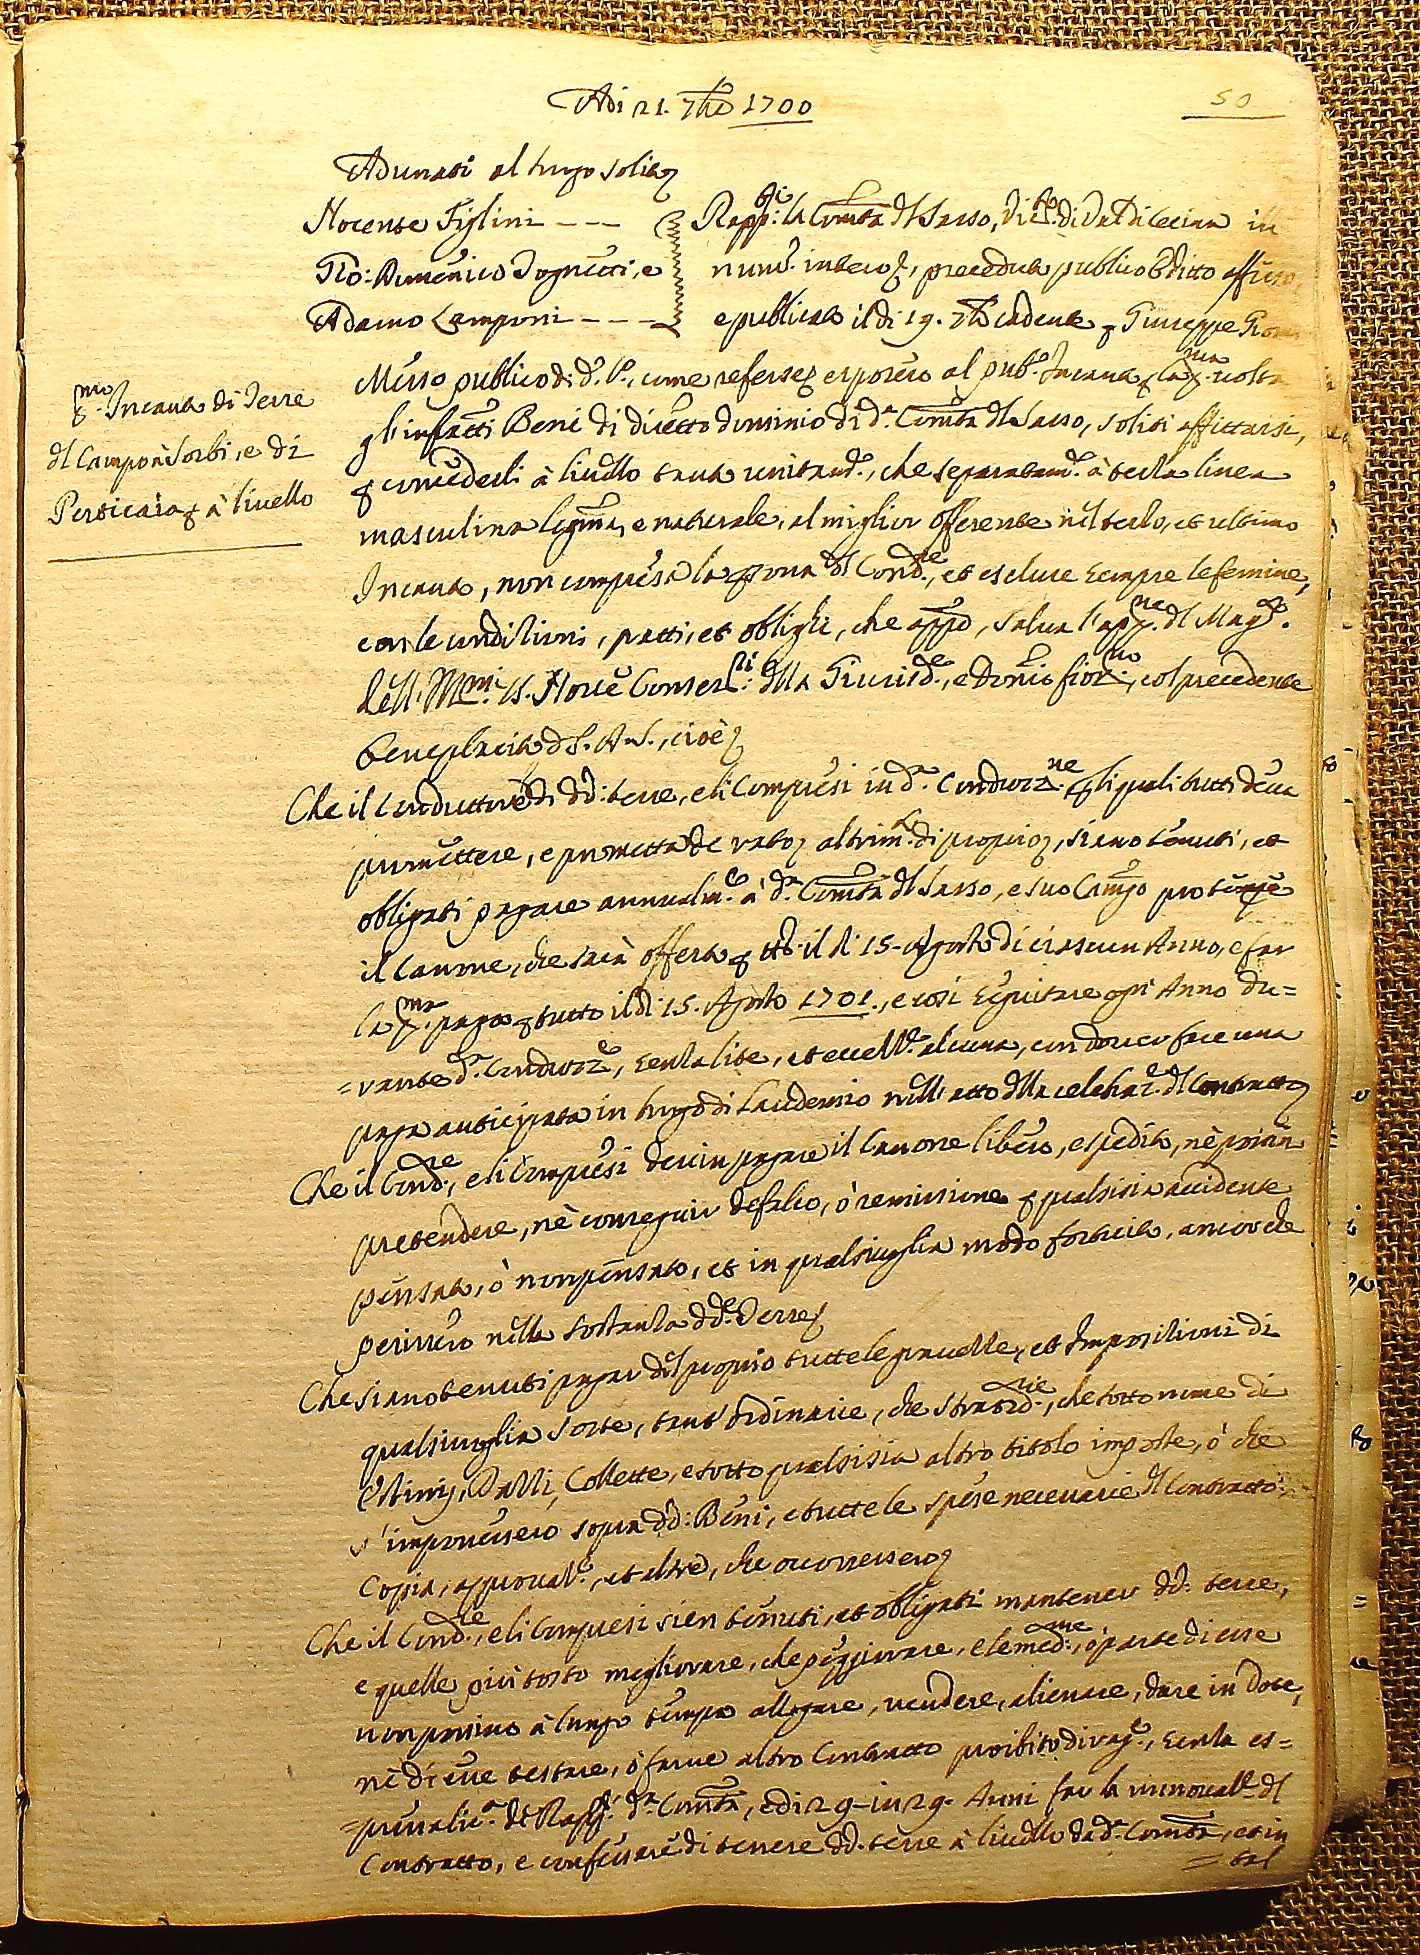 Adi 21. 7bre 1700
50
Adunati al luogo solito
Nocente Figlini - - -
Gio: Domenico Tognetti, e
Adamo Lamponi - - -
Rapp:ti la Comtà del Sasso, di Val di Cecina in
num.o intero, precedente publico Editto affisso
e publicato il dì 19. 7bre cadente p Giuseppe
Messo publico di d.o l.o, come referse, esposero al pub.o Incanto p la p.ma volta
p.mo Incanto di Terre
del Campo à Sorbi, e di
Perticaia p à livello
gl'infratti Beni di diretto dominio di d.a Comtà del Sasso, soliti affittarsi,
p concederli à livello tanto unitam.e, che separatam.e à terza linea
masculina legma, e naturale, al miglior offerente nel terzo, et ultimo
Incanto, non compresa la psona del Cond.re, et escluse sempre le femine,
con le condizioni, patti, et oblighi, che appo, salva l'app.ne del Mag.to
dell'Ill.mi SS. Nove Conser.ri della Giurisd.e, e Domio fior.no, col precedente
Beneplacito di S. A. S., cioè
Che il Conduttore di dd: terre, e li Compresi in d.a Conduz.ne p li quali tutti deva
promettere, e prometta de rato, altrim.ti di proprio, siano tenuti, et
obligati pagare annualm.e à d.a Comtà del Sasso, e suo Camgo pro tempe
il Canone, che sarà offerto p tto il dì 15. Agosto di ciascun Anno, e far
la p.ma paga p tutto il dì 15. Agosto 1701., e così seguitare ogni Anno du=
=rante d.a Conduz.e, senza lite, et eccett.e alcuna, con dover fare una
paga anticipata in luogo di Laudemio nell'atto della celebraz.e del Contratto
Che il Cond.re, e li Compresi devin pagare il Canone libero, e spedito, nè possin
pretendere, nè conseguir defalco, ò remissione p qualsisia accidente
pensato, ò non pensato, et in qualsivoglia modo fortuito, ancorche
perissero nella sostanza dd.e Terre
Che siano tenuti pagar del proprio tutte le gravezze, et Imposizioni di
qualsivoglia sorte, tant'ordinarie, che straord.rie, che sotto nome di
Estimi, Dazzi, Collette, e sotto qualsisia altro titolo imposte, ò che
s'imponessero sopra dd: Beni, e tutte le spese necessarie del Contratto
Copia, approvaz.e, et altre, che occorressero
Che il Cond.re, e li Compresi sien tenuti, et obligati mantener dd. terre,
e quelle più tosto megliorare, che peggiorare, e le med.me, ò parte di esse
non possino à lungo tempo allogare, vendere, alienare, dare in dote,
nè di esse testare, ò farne altro Contratto proibito di rag.e, senza es=
=pressa lic.a de Rapp.ti d.a Comtà, e di 29. in 29. Anni far la rinovaz.e del
Contratto, e confessare di tenere dd. terre à livello da d.a Comtà, et in
= tal